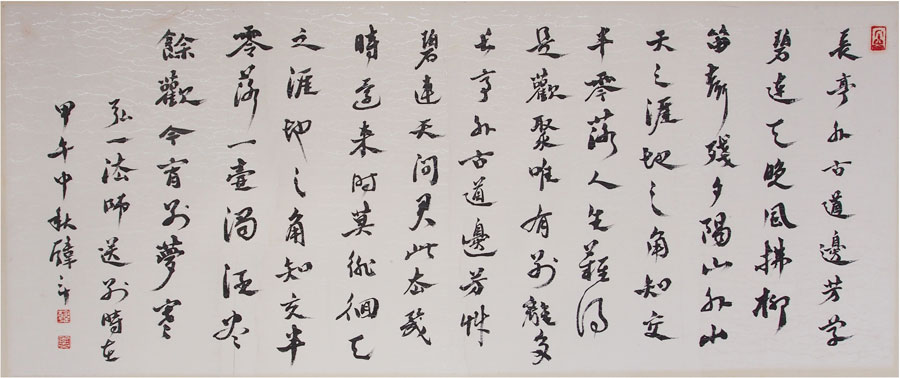 長亭外古道邊芳草
碧連天晚風拂柳
笛聲殘夕陽山外山
天之涯地之角知交
半零落人生難得
是歡聚唯有別離多
長亭外古道邊芳草
碧連天問君此去幾
時還来时莫徘徊天
之涯地之角知交半
零落一壺濁酒盡
餘歡今宵别夢寒
弘一法師送别時在
甲午中秋